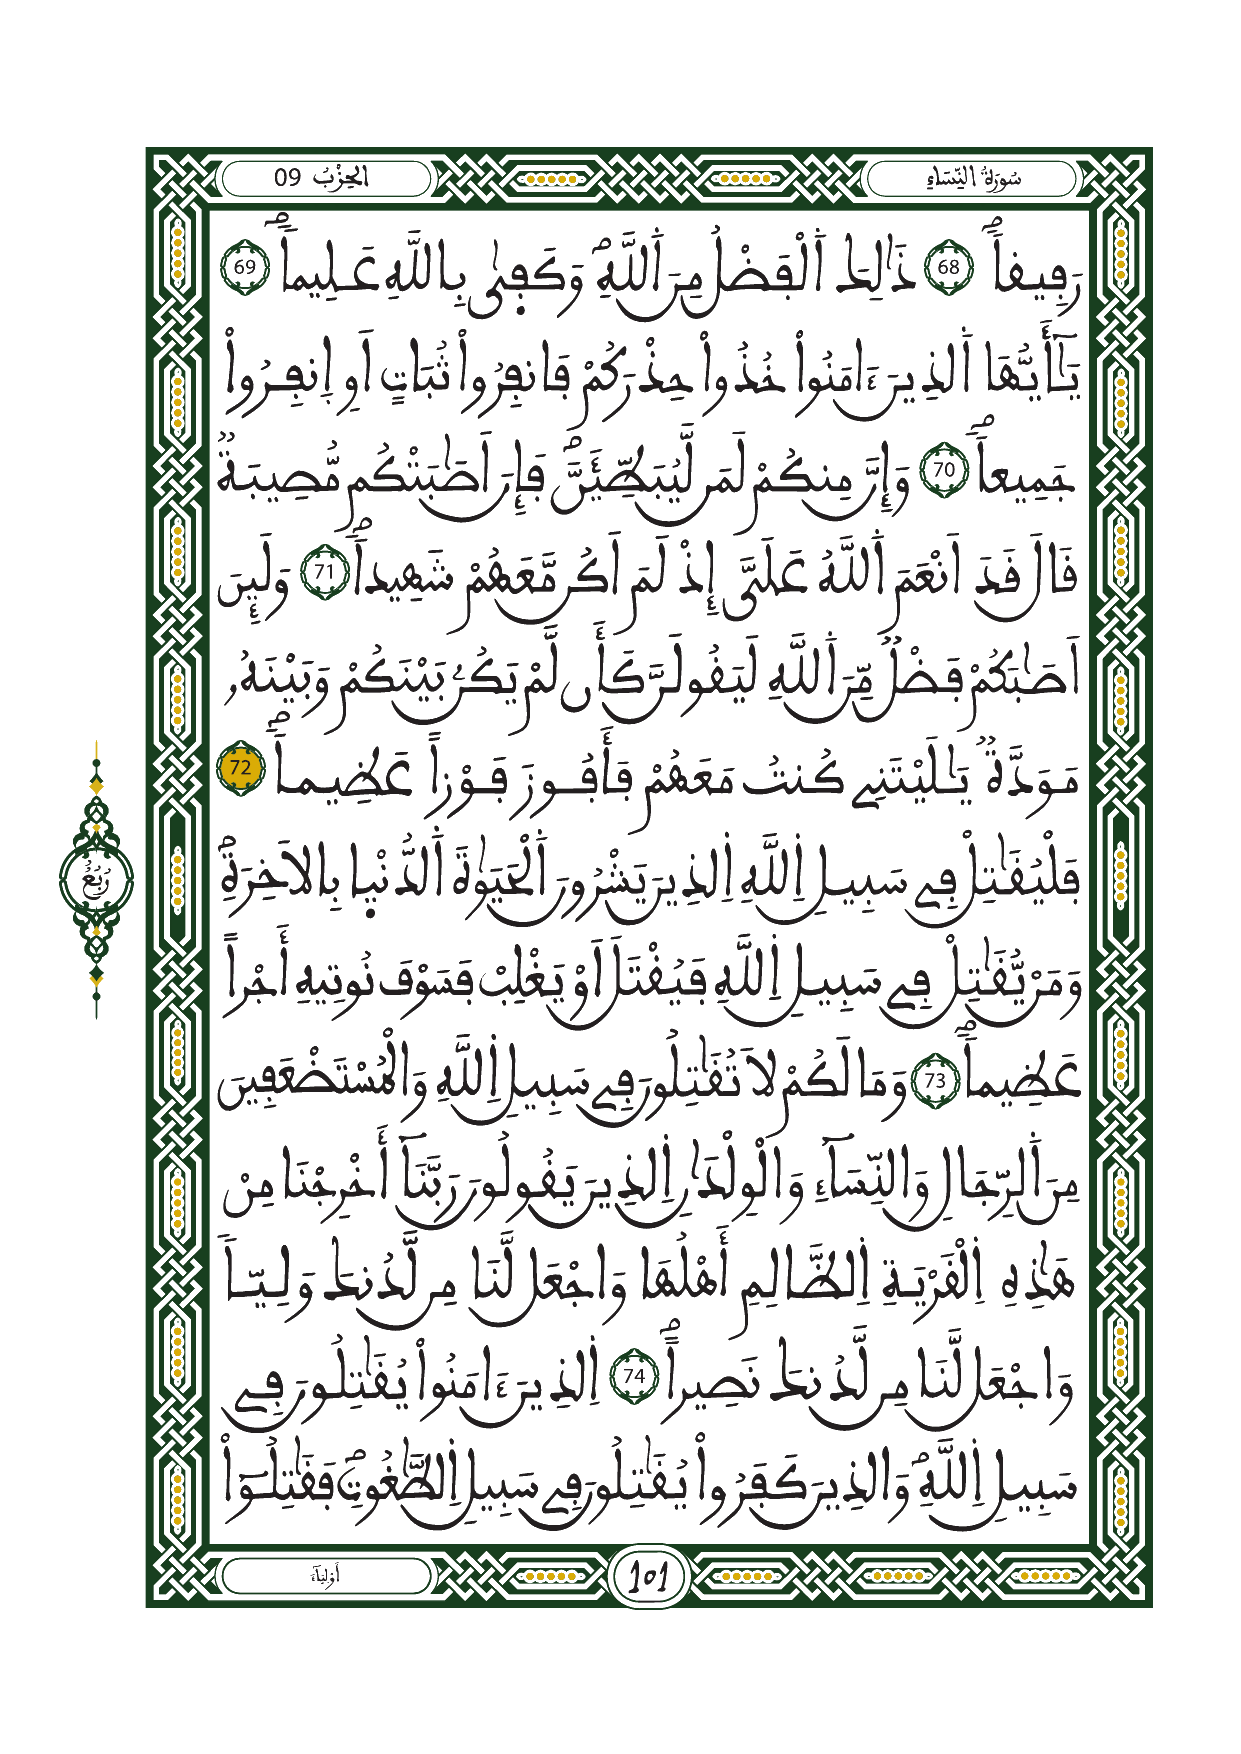 سُورَةُ النِّسَاءِ
الحِزْبُ 09
رَفِيقاًۖ 68 ذَٰلِكَ اَ۬لْفَضْلُ مِنَ اَ۬للَّهِۖ وَكَف۪ىٰ بِاللَّهِ عَلِيماًۖ 69
يَٰٓأَيُّهَا اَ۬لذِينَ ءَامَنُواْ خُذُواْ حِذْرَكُمْ فَانفِرُواْ ثُبَاتٍ اَوِ اِ۪نفِرُواْ
جَمِيعاًۖ 70 وَإِنَّ مِنكُمْ لَمَن لَّيُبَطِّئَنَّۖ فَإِنَ اَصَٰبَتْكُم مُّصِيبَةٞ
قَالَ قَدَ اَنْعَمَ اَ۬للَّهُ عَلَيَّ إِذْ لَمَ اَكُن مَّعَهُمْ شَهِيداًۖ 71 وَلَئِنَ
اَصَٰبَكُمْ فَضْلٞ مِّنَ اَ۬للَّهِ لَيَقُولَنَّ كَأَن لَّمْ يَكُنۢ بَيْنَكُمْ وَبَيْنَهُۥ
مَوَدَّةٞ يَٰلَيْتَنِے كُنتُ مَعَهُمْ فَأَفُوزَ فَوْزاً عَظِيماًۖ 72
فَلْيُقَٰتِلْ فِے سَبِيلِ اِ۬للَّهِ اِ۬لذِينَ يَشْرُونَ اَ۬لْحَيَوٰةَ اَ۬لدُّنْي۪ا بِالَاخِرَةِۖ
وَمَنْ يُّقَٰتِلْ فِے سَبِيلِ اِ۬للَّهِ فَيُقْتَلَ اَوْ يَغْلِبْ فَسَوْفَ نُوتِيهِ أَجْراً
عَظِيماًۖ 73 وَمَا لَكُمْ لَا تُقَٰتِلُونَ فِے سَبِيلِ اِ۬للَّهِ وَالْمُسْتَضْعَفِينَ
مِنَ اَ۬لرِّجَالِ وَالنِّسَآءِ وَالْوِلْدَٰنِ اِ۬لذِينَ يَقُولُونَ رَبَّنَآ أَخْرِجْنَا مِنْ
هَٰذِهِ اِ۬لْقَرْيَةِ اِ۬لظَّالِمِ أَهْلُهَا وَاجْعَل لَّنَا مِن لَّدُنكَ وَلِيّاٗ
وَاجْعَل لَّنَا مِن لَّدُنكَ نَصِيراًۖ 74 اِ۬لذِينَ ءَامَنُواْ يُقَٰتِلُونَ فِے
سَبِيلِ اِ۬للَّهِۖ وَالذِينَ كَفَرُواْ يُقَٰتِلُونَ فِے سَبِيلِ اِ۬لطَّٰغُوتِۖ فَقَٰتِلُوٓاْ
رُبُعُ
أَوْلِيَآءَ
101